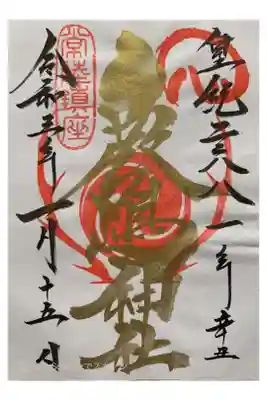 皇紀二六八一年辛丑
神社
常陸鎮座
令和三年一月十五日